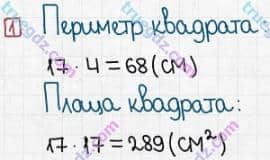 1 Периметр квадрата
17 · 4 = 68 (см)
Площа квадрата:
17 · 17 = 289 (см²)